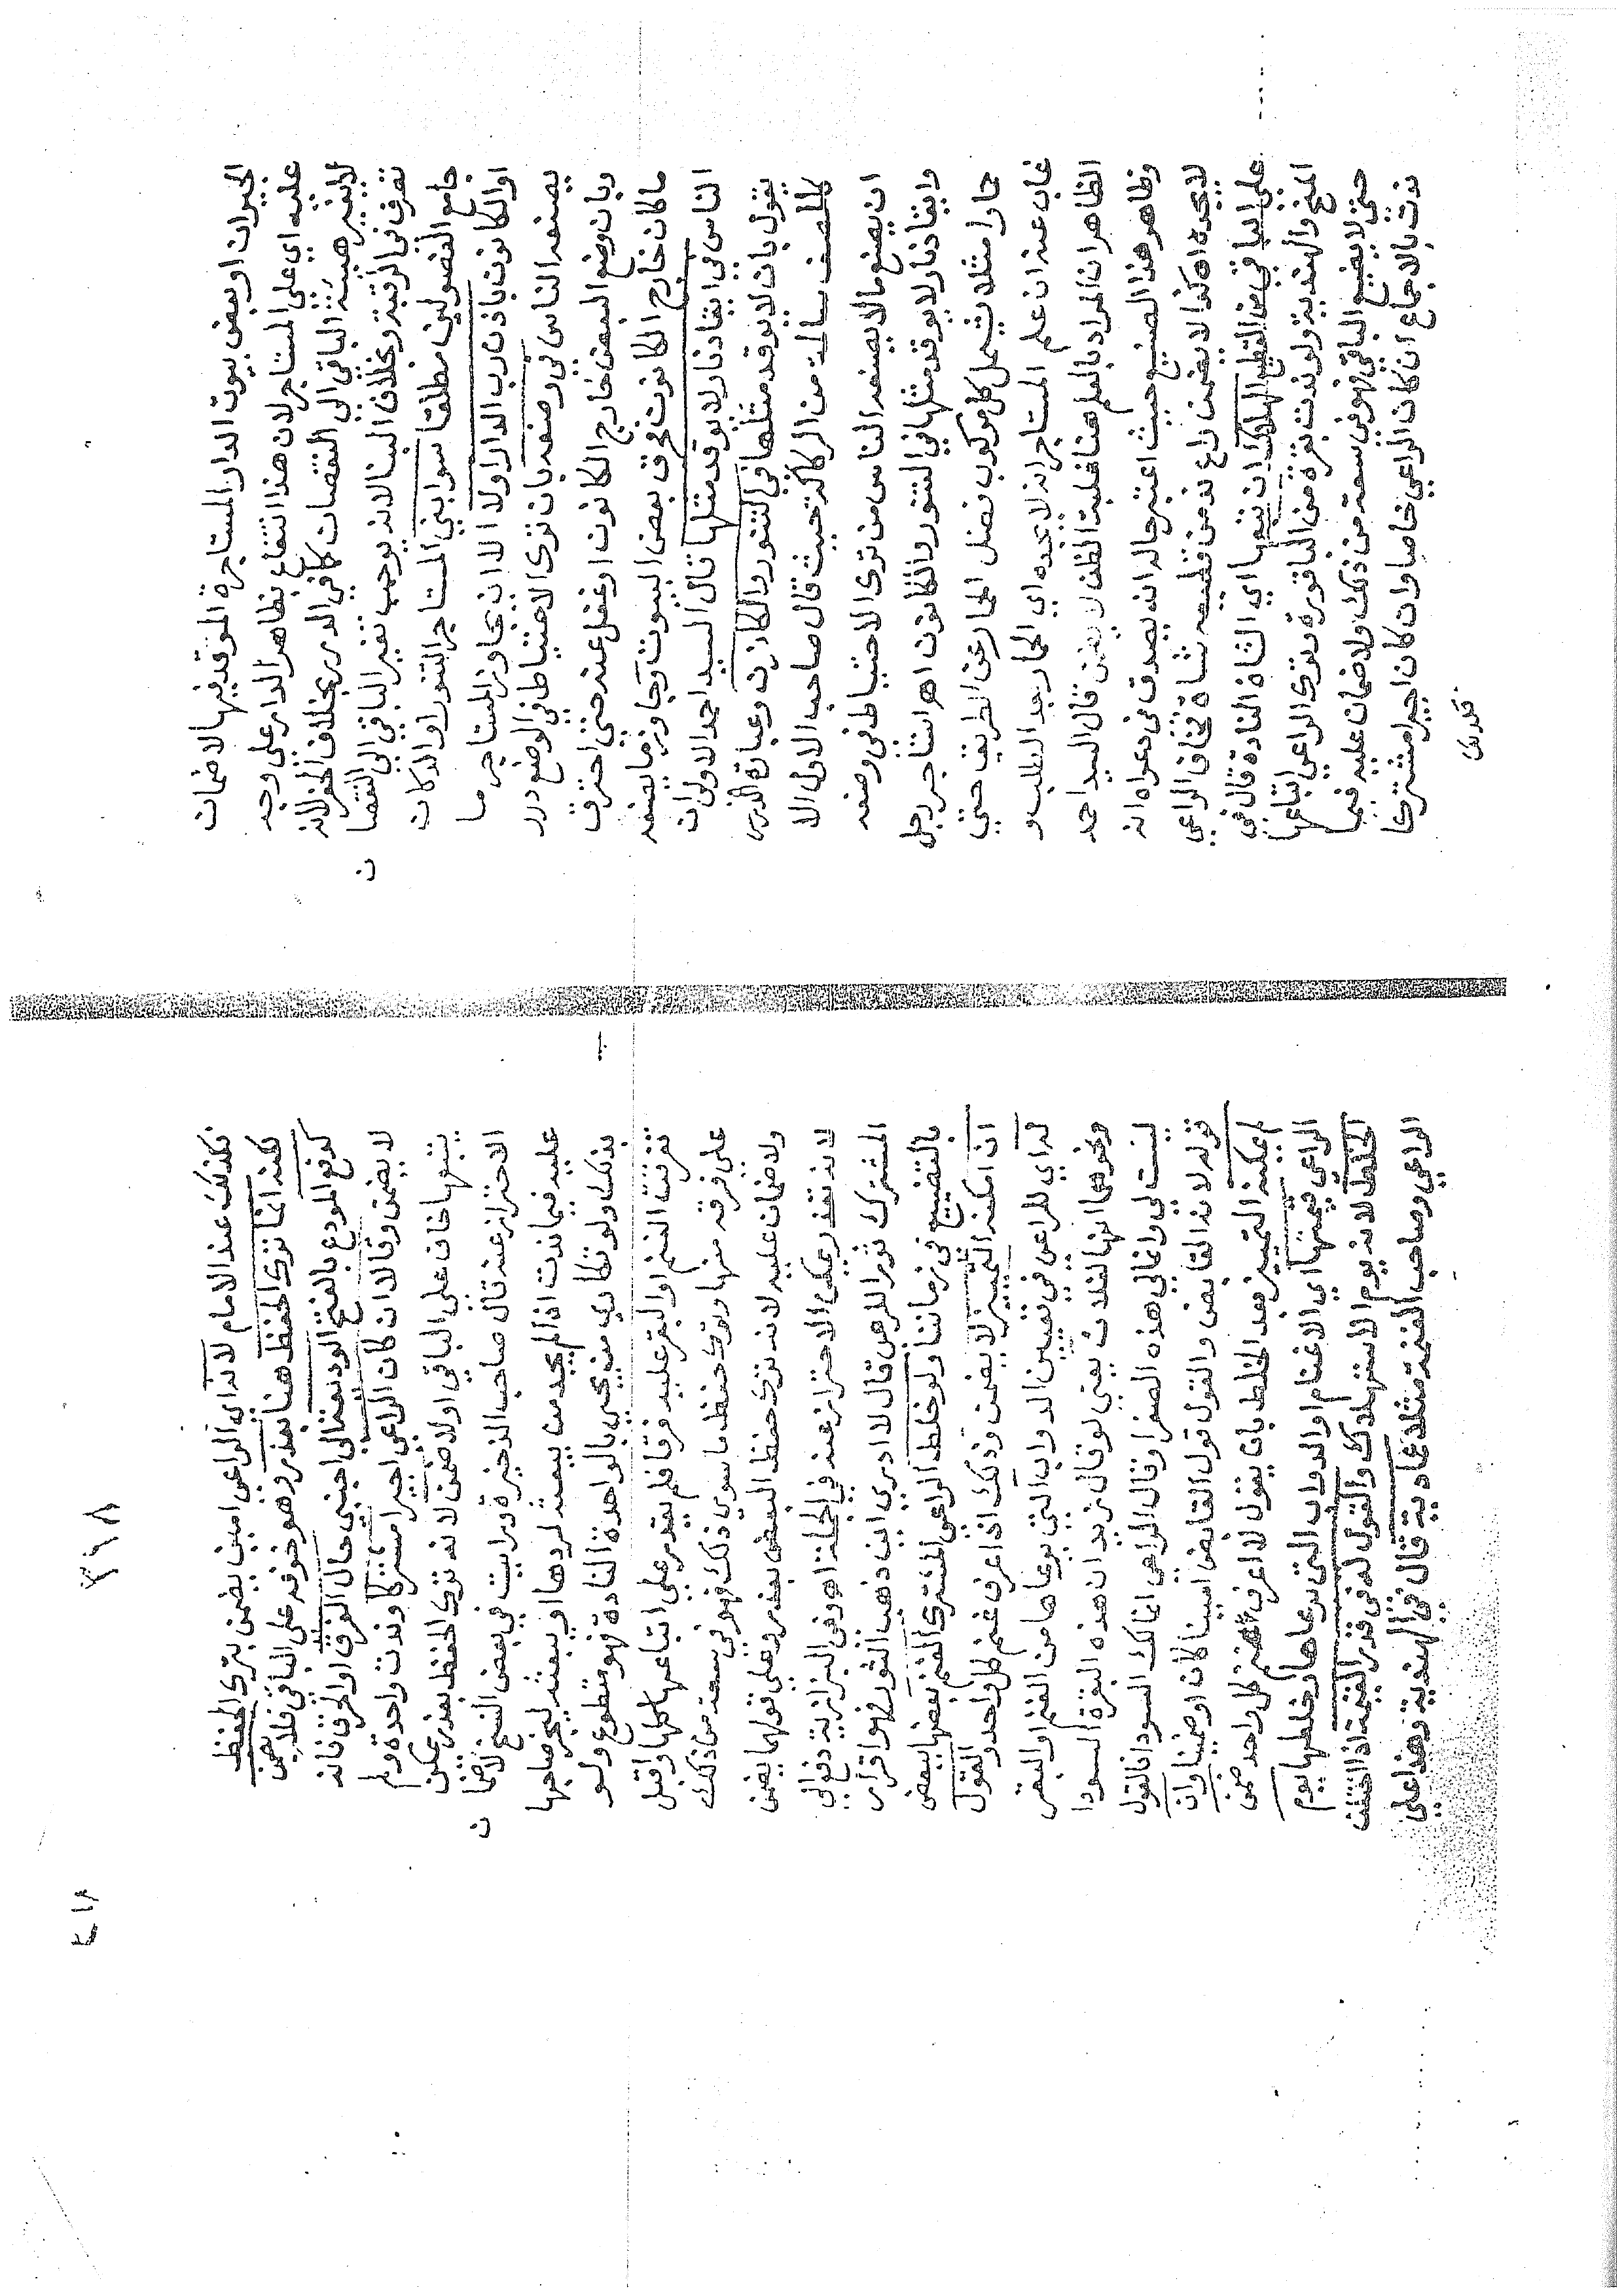 الجيران او بعض بيوت الدار المستاجرة الموقد فيها لا ضمان
عليه اي على المستاجر لان هذا انتفاع بظاهر الدار علي وجه
لا يغير هيئة الباقي الى النقصان كما في الدرر بخلاف الحفر لانه
تصرف في الرقبة وبخلاف البنا لانه يوجب تغير الباقي الى النقصا
ن
جامع الفصولين مطلقا سوا بني المستاجر التنور او الدكان
او الكانون باذن رب الدار اولا الا ان يجاوز المستاجر ما
يصنعه الناس في وضعه بان ترك الاحتياط في الوضع درر
وبان وضع البعض خارج الكانون او غفل عنه حتى احترق
ما كان خارج الكانون فحرق بعض البيوت وجاوز ما يصنعه
الناس في ايقاد نار لا يوقد مثلها قال السيد احمد الاولى ان
يقول بان لا يوقد مثلها في التنور والكانون وعبارة الدرر
كالمصنف سالمة من الركاكة حيث قال صاحب الاولى الا
ان يصنع ما لا يصنعه الناس من ترك الاحتياط في وضعه
وايقاد نار لا يوقد مثلها في التنور والكانون اهـ استاجر رجل
حمارا مثلا يشمل كل مركوب فضل الحمار عن الطريق حتي
غاب عنه ان علم المستاجر انه لا يجده اي الحمار بعد الطلب و
الظاهر ان المراد بالعلم هنا غلبة الظن لا يضمن قال السيد احمد
وظاهر هذا الصنيع حيث اعتبر حاله انه يصدق في دعواه انه
لا يجده اهـ كذا لا يضمن راع ند من قطيعه شاة فخاف الراعي
علي الباقي من القطيع الهلاك ان تبعها اي الشاة النادة قال في
المنح والهندية ولو ندت بقرة من الباقورة فترك الراعي اتباعها
حتى لا يضيع الباقي فهو في سعة من ذلك ولا ضمان عليه فيما
ندت بالاجماع ان كان الراعي خاصا وان كان اجير مشتركا
فكذلك
٣١٨
فكذلك عند الامام لانه اي الراعي امين يضمن بترك الحفظ
لكنه انما ترك الحفظ هنا بعذر وهو خوفه على الباقي فلا يضمن
كدفع المودع بالفتح الوديعة الى اجنبي حال الغرق او الحرق فانه
لا يضمن وقالا ان كان الراعي اجيرا مشتركا وندت واحدة ولم
يتبعها خاف علي الباقي اولا ضمن لانه ترك الحفظ بعذر يمكن
الاحتراز عنه قال صاحب الذخيرة ورايت في بعض النسخ لا ضما
ن
عليه فيما ندت اذا لم يجد من يبعثه لردها او يبعثه ليخبر صاحبها
بذلك ولو تكارى من يجي بالواحدة النادة فهو متطوع ولو
تفرقت الغنم او البقر عليه فرقا فلم يقدر على اتباعها كلها واقبل
علي فرقة منها وترك حفظ ما سوي ذلك فهو في سعة من ذلك
ولا ضمان عليه لانه ترك حفظ البعض بعذر وعلي قولهما يضمن
لانه تعذر يمكن الاحتراز عنه في الجملة اهـ وفي البزازية دفع الي
المشترك ثورا للرعي قال لا ادري اين ذهب الثور فهو اقرار
بالتضييع في زماننا ولو خلط الراعي المشترك الغنم بعضها ببعض
ان امكنه التمييز لا يضمن وذلك اذا عرف غنم كل واحد والقول
له اي للراعي في تعيين الدواب التي يرعاها من الغنم او البقر
ونحوهما انها لفلان يعني لو قال زيد ان هذه البقرة السودا
ليست لي وانما لي هذه الصفرا وقال الراعي انما لك السودا فالقول
قوله لانه القابض والقول قول القابض امينا كان او ضمينا وان
لم يمكنه التمييز بعد الخلط بان يقول لا اعرف غنم كل واحد ضمن
الراعي قيمتها اي الاغنام او الدواب التي يرعاها وخلطها يوم
الخلط لانه يوم الاستهلاك والقول له في قدر القيمة اذا اختلف
الراعي وصاحب الغنم مثلا عمادية قال في الهندية وهذا علي